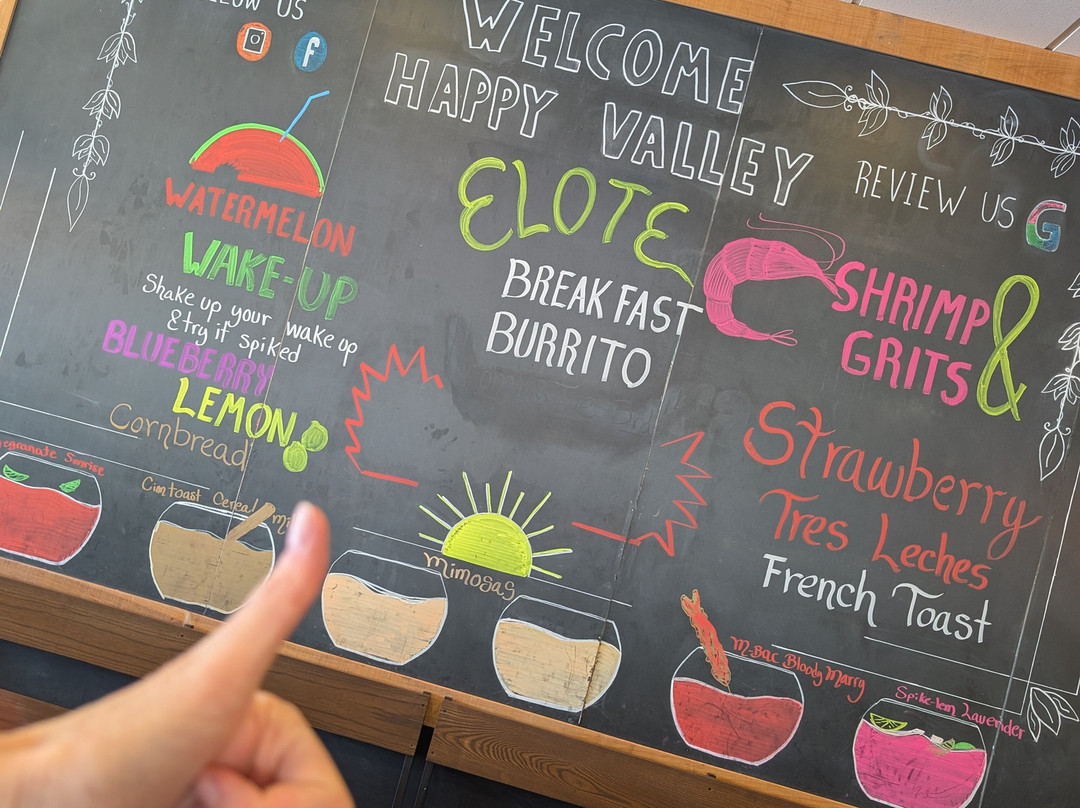 US
f
WELCOME
HAPPY VALLEY
REVIEW US G
WATERMELON
WAKE-UP
Shake up your wake up
& try it spiked
BLUEBERRY
LEMON
Cornbread
ELOTE
BREAKFAST
BURRITO
SHRIMP &
GRITS
Strawberry
Tres Leches
French Toast
Sunrise
Cinn toast Cereal
mimosas
M-Bac Bloody Marry
Spike-lem Lavender